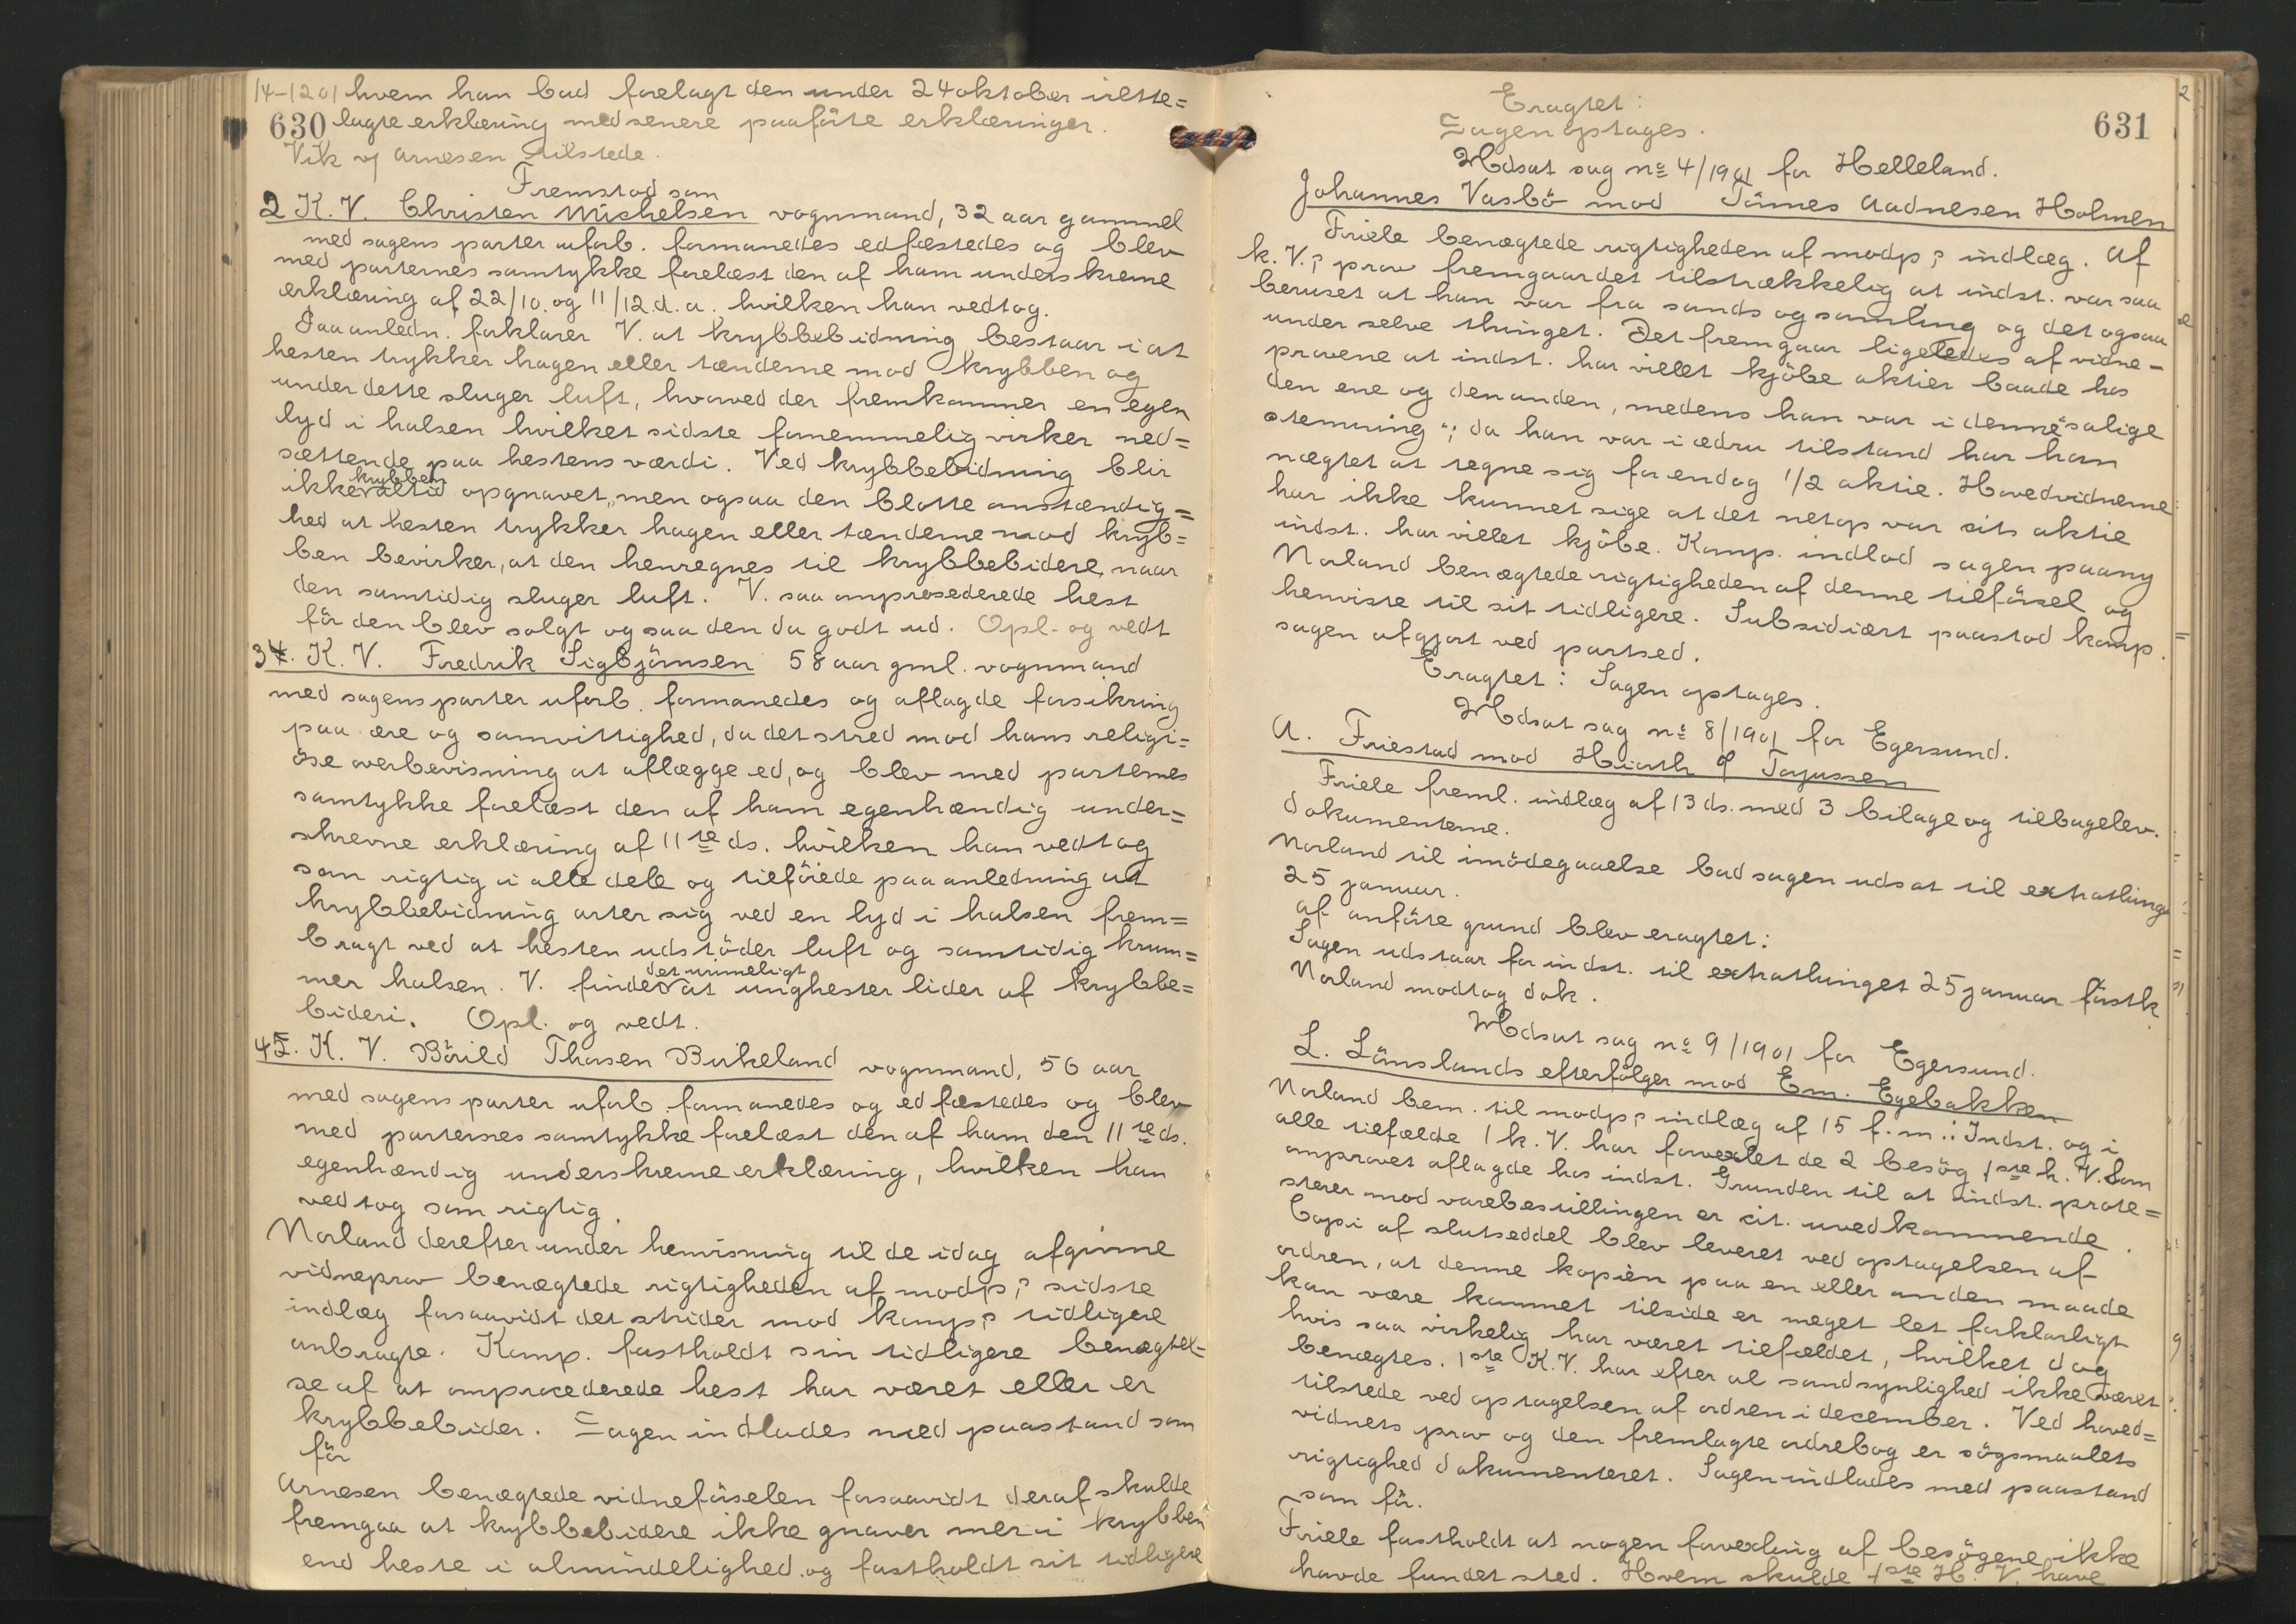 14-1201 hvem han bad forelagt den under 24 oktober irette=
630 lagte erklæring med senere paaførte erklæringer.
Vik og Arnesen tilstede.
Fremstod som
2 K. V. Christen Michelsen vognmand, 32 aar gammel
med sagens parter uforb. formanedes edfæstedes og blev
med parternes samtykke forelæst den af ham underskrevne
erklæring af 22/10. og 11/12. d. a. hvilken han vedtog.
Paa anledn. forklarer V. at krybbebidning bestaar i at
hesten trykker hagen eller tænderne mod krybben og
under dette sluger luft, hvorved der fremkommer en egen
lyd i halsen hvilket sidste fornemmelig virker ned=
sættende paa hestens værdi. Ved krybbebidning blir
krybben
ikke altid opgnavet, men ogsaa den blotte omstændig=
hed at hesten trykker hagen eller tænderne mod kryb=
ben bevirker, at den henregnes til krybbebidere, naar
den samtidig sluger luft. V. saa omprosederede hest
før den blev solgt og saa den da godt ud. Opl. og vedt
34. K. V. Fredrik Sigbjørnsen 58 aar gml. vognmand
med sagens parter uforb. formanedes og aflagde forsikring
paa ære og samvittighed, da det stred mod hans religi=
øse overbevisning at aflægge ed, og blev med parternes
samtykke forelæst den af ham egenhændig under=
skrevne erklæring af 11te ds. hvilken han vedtog
som rigtig i alle dele og tilføiede paa anledning at
krybbebidning arter sig ved en lyd i halsen frem=
bragt ved at hesten udstøder luft og samtidig krum=
det urimeligt
mer halsen. V. finder at unghester lider af krybbe=
bideri. Opl. og vedt.
45. K. V. Bårild Thorsen Birkeland vognmand, 56 aar
med sagens parter uforb. formanedes og edfæstedes og blev
med parternes samtykke forelæst den af ham den 11te ds.
egenhændig underskrevne erklæring, hvilken han
vedtog som rigtig.
Norland derefter under henvisning til de idag afgivne
vidneprov benægtede rigtigheden af modp's sidste
indlæg forsaavidt det strider mod komp's tidligere
anbragte. Komp. fastholdt sin tidligere benægtel=
se af at omprocederede hest har været eller er
krybbebider. Sagen indlades med paastand som
før
Arnesen benægtede vidneførselen forsaavidt deraf skulde
fremgaa at krybbebidere ikke gnaver mer i krybben
end heste i almindelighed og fastholdt sit tidligere
Eragtet:
Sagen optages.
631
Udsat sag no 4/1901 for Helleland.
Johannes Vasbø mod Tønnes Aadnesen Holmen
Friele benægtede rigtigheden af modp's indlæg. Af
k. V.'s prov fremgaar det tilstrækkelig at indst. var saa
beruset at han var fra sands og samling og det ogsaa
under selve thinget. Det fremgaar ligeledes af vidne-
provene at indst. har villet kjøbe aktier baade hos
den ene og den anden, medens han var i denne "salige
stemning"; da han var i ædru tilstand har han
nægtet at tegne sig for endog 1/2 aktie. Hovedvidnerne
har ikke kunnet sige at det netop var sits aktie
indst. har villet kjøbe. Komp. indlod sagen paany
Norland benægtede rigtigheden af denne tilførsel og
henviste til sit tidligere. Subsidiært paastod komp.
sagen afgjort ved partsed.
Eragtet: Sagen optages.
Udsat sag no 8/1901 for Egersund.
A. Friestad mod Hiorth & Torjussen
Friele freml. indlæg af 13 ds. med 3 bilage og tilbagelev.
dokumenterne.
Norland til imødegaaelse bad sagen udsat til extrathinge
25 januar.
Af anførte grund blev eragtet:
Sagen udstaar for indst. til extrathinget 25 januar førstk.
Norland modtog dok.
Udsat sag no 9/1901 for Egersund.
L. Lønslands efterfølger mod Em. Egebakken
Norland bem. til modp's indlæg af 15 f.m.: Indst. og i
alle tilfælde 1 k. V. har forvexlet de 2 besøg 1ste h. V. som
omprovet aflagde hos indst. Grunden til at indst. prote=
sterer mod varebestillingen er cit. uvedkommende.
Copi af slutseddel blev leveret ved optagelsen af
ordren, at denne kopien paa en eller anden maade
kan være kommet tilside er meget let forklarligt
hvis saa virkelig har været tilfældet, hvilket dog
benægtes. 1ste K. V. har efter al sandsynlighed ikke været
tilstede ved optagelsen af ordren i december. Ved hoved=
vidnets prov og den fremlagte ordrebog er søgsmaalets
rigtighed dokumenteret. Sagen indlades med paastand
som før.
Friele fastholdt at nogen forvexling af besøgene ikke
havde fundet sted. Hvem skulde 1ste H. V. have